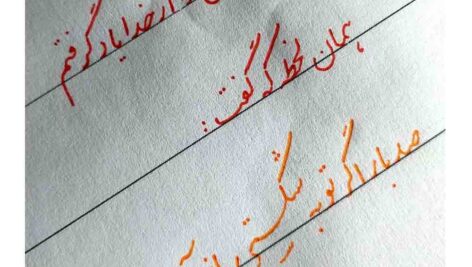 از خدا یاد گرفتم
همان لحظه که گفت:
صد بار اگر توبه شکستی باز